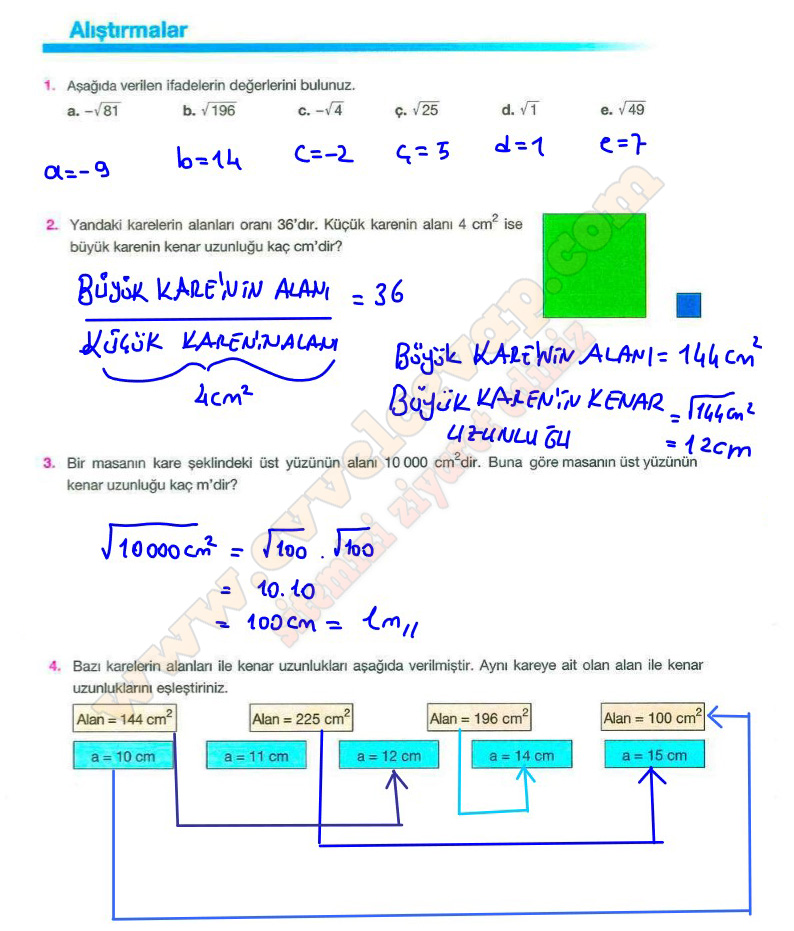 Alıştırmalar
1. Aşağıda verilen ifadelerin değerlerini bulunuz.
a. −√81 b. √196 c. −√4 ç. √25 d. √1 e. √49
a=-9 b=14 c=-2 ç=5 d=1 e=7
2. Yandaki karelerin alanları oranı 36'dır. Küçük karenin alanı 4 cm² ise
büyük karenin kenar uzunluğu kaç cm'dir?
BÜYÜK KARE'NİN ALANI = 36
KÜÇÜK KARENİN ALANI
4cm²
BÜYÜK KARE'NİN ALANI = 144 cm²
BÜYÜK KAREN'İN KENAR = √144cm²
UZUNLUĞU = 12cm
3. Bir masanın kare şeklindeki üst yüzünün alanı 10 000 cm²dir. Buna göre masanın üst yüzünün
kenar uzunluğu kaç m'dir?
√10000cm² = √100 . √100
= 10.10
= 100cm = 1m//
4. Bazı karelerin alanları ile kenar uzunlukları aşağıda verilmiştir. Aynı kareye ait olan alan ile kenar
uzunluklarını eşleştiriniz.
Alan = 144 cm² Alan = 225 cm² Alan = 196 cm² Alan = 100 cm²
a = 10 cm a = 11 cm a = 12 cm a = 14 cm a = 15 cm
www.evvelcevap.com
sitemizi ziyaret ediniz